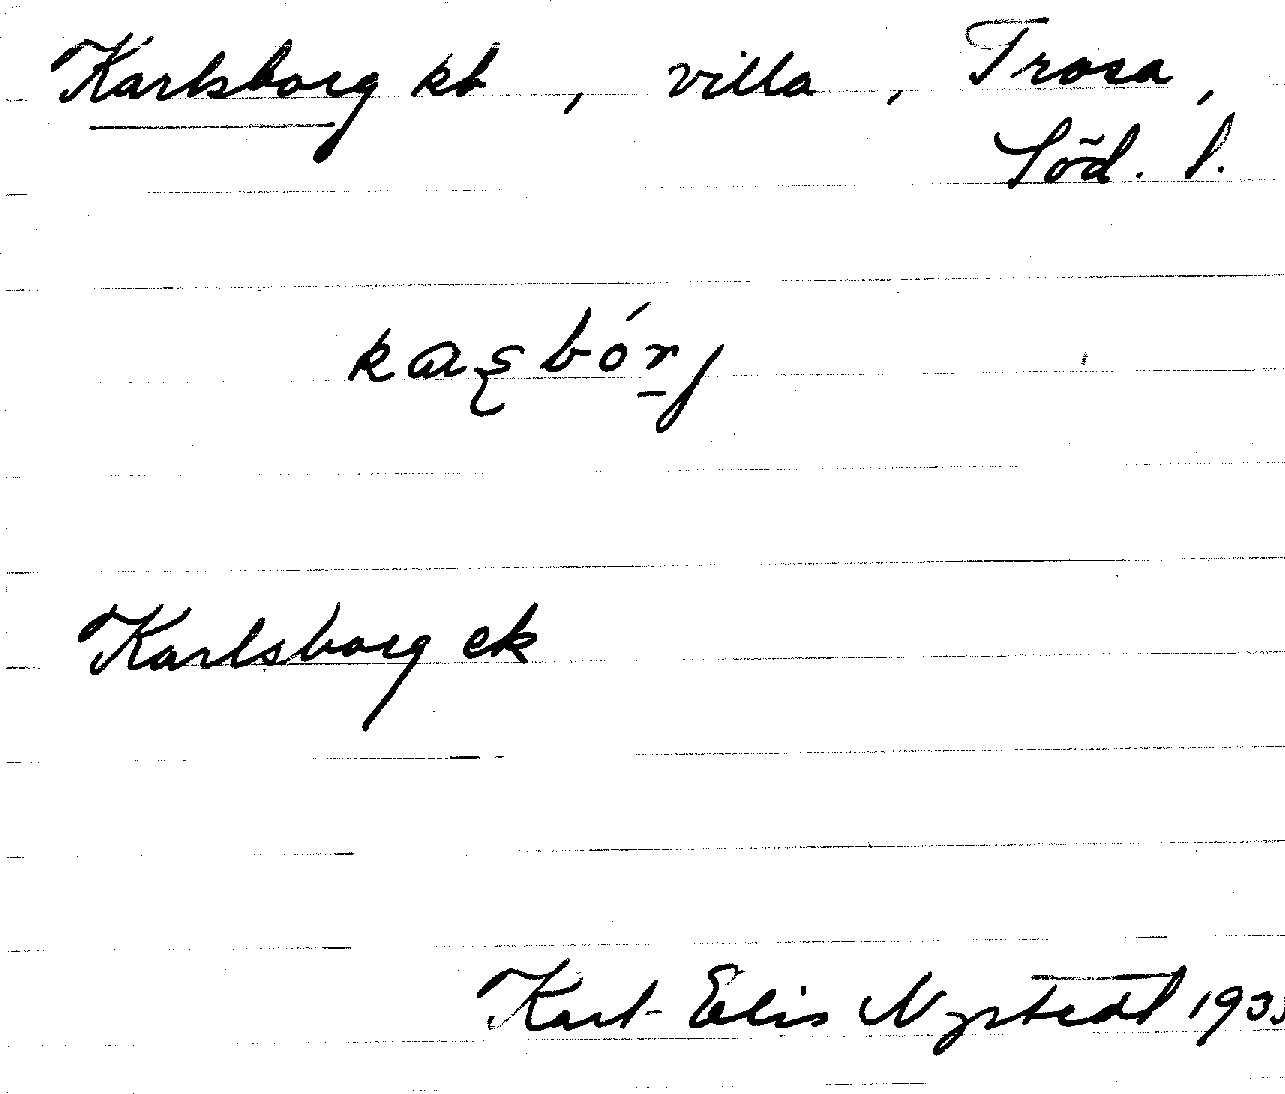 Karlsborg kb, villa, Trosa,
Söd. l.
Karlsborg ek
Karl-Elis Nystedt